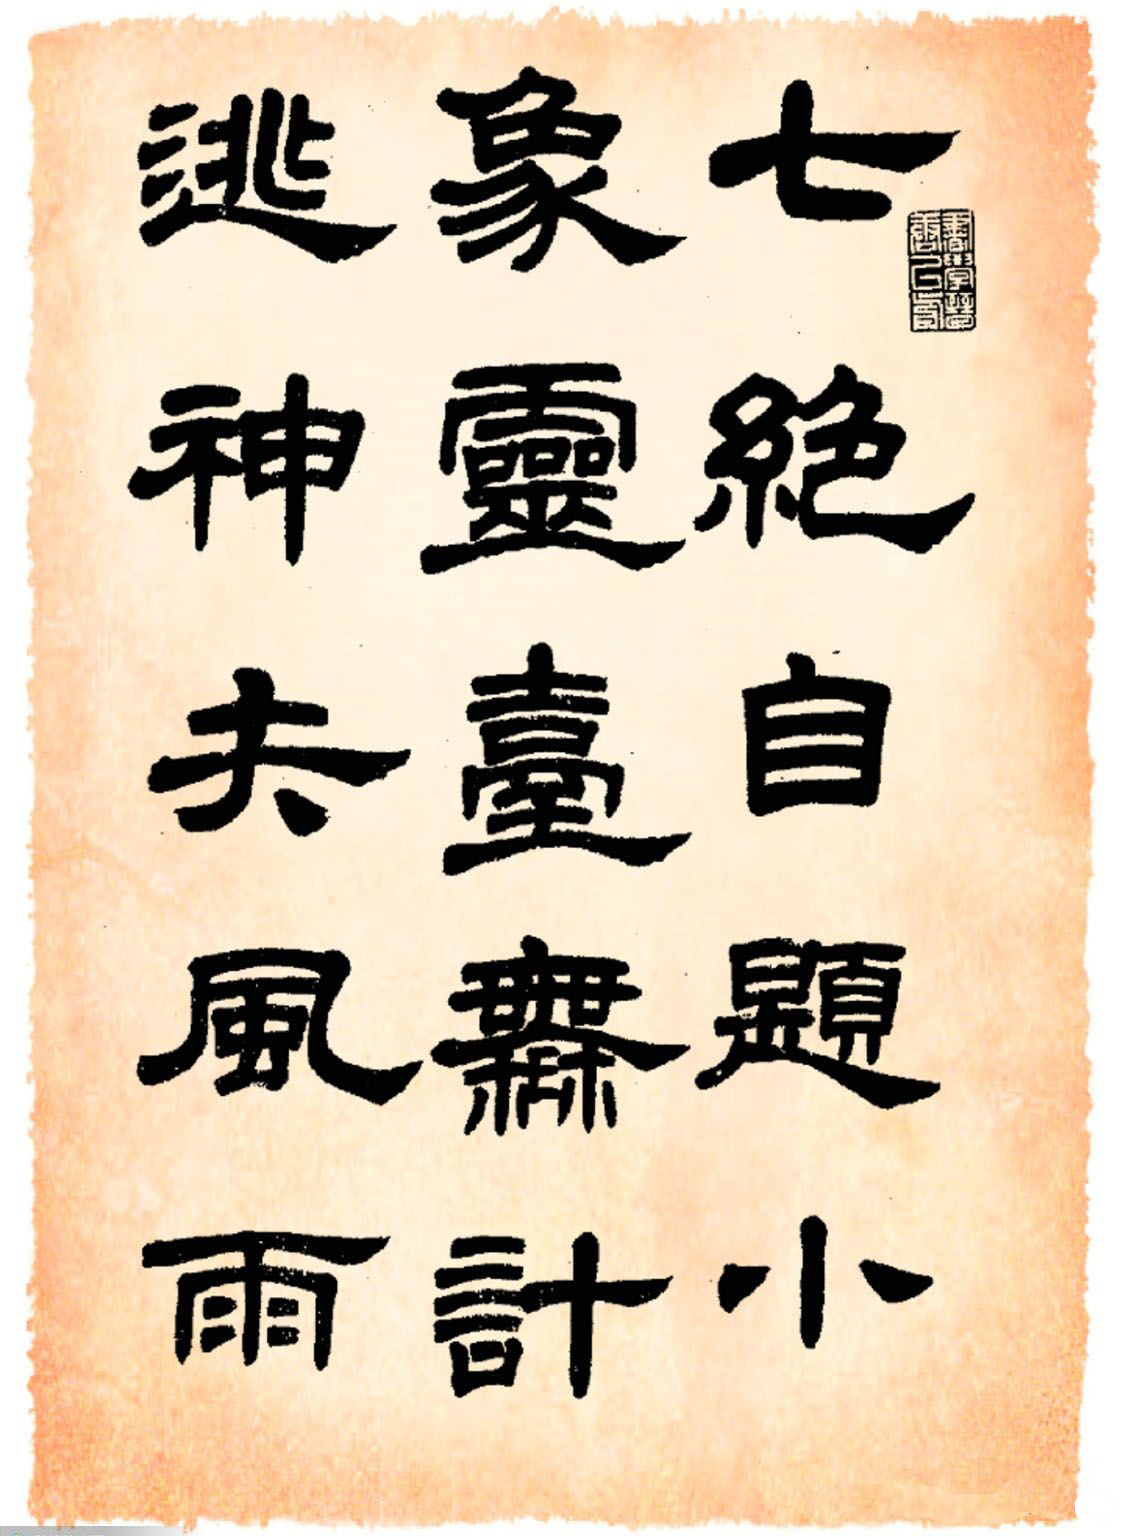 七絕自題小
象靈臺無計
逃神矢風雨